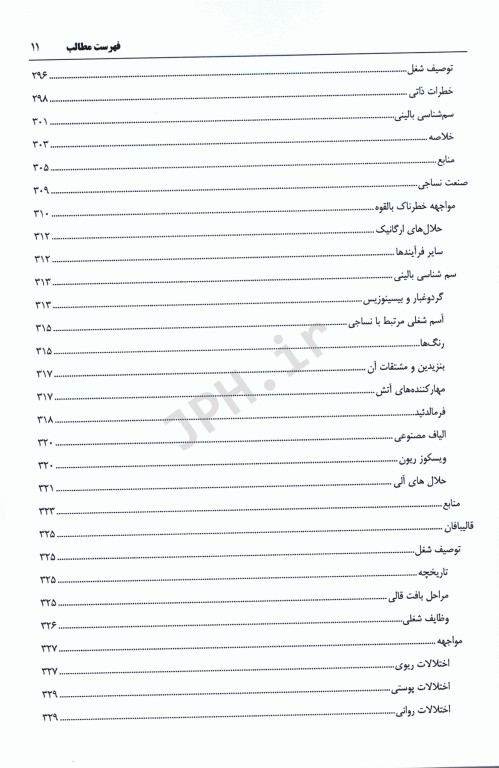 فهرست مطالب ۱۱
توصیف شغل ۲۹۶
خطرات ذاتی ۲۹۸
سم‌شناسی بالینی ۳۰۱
خلاصه ۳۰۳
منابع ۳۰۵
صنعت نساجی ۳۰۹
مواجهه خطرناک بالقوه ۳۱۰
حلال‌های ارگانیک ۳۱۲
سایر فرآیندها ۳۱۲
سم شناسی بالینی ۳۱۳
گردوغبار و بیسینوزیس ۳۱۳
آسم شغلی مرتبط با نساجی ۳۱۵
رنگ‌ها ۳۱۵
بنزیدین و مشتقات آن ۳۱۷
مهارکننده‌های آتش ۳۱۷
فرمالدئید ۳۱۸
الیاف مصنوعی ۳۲۰
ویسکوز ریون ۳۲۰
حلال های آلی ۳۲۱
منابع ۳۲۳
قالیبافان ۳۲۵
توصیف شغل ۳۲۵
تاریخچه ۳۲۵
مراحل بافت قالی ۳۲۵
وظایف شغلی ۳۲۶
مواجهه ۳۲۷
اختلالات ریوی ۳۲۷
اختلالات پوستی ۳۲۹
اختلالات روانی ۳۲۹
JPH.ir